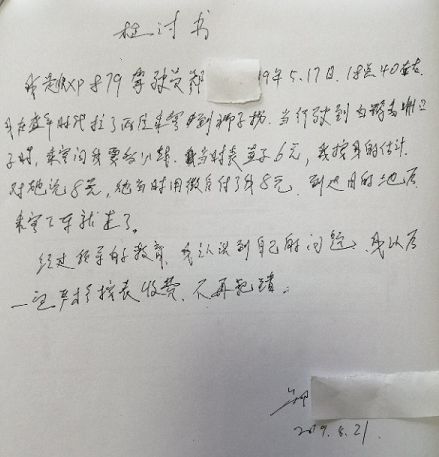 检讨书
我是皖XP879驾驶员郑 19年5.17日.18点40左右
我在盛年时代拉了两位乘客到狮子桥.当行驶到
子时,乘客问我要多少钱.我当时表显示6元,我按自己的估计
对她说8元,他当时用微信付了我8元.到达目的地后
乘客下车就走了。
经过领导的教育,我认识到自己的问题,我以后
一定严格按表收费,不再犯错。
郑
2019.5.21.